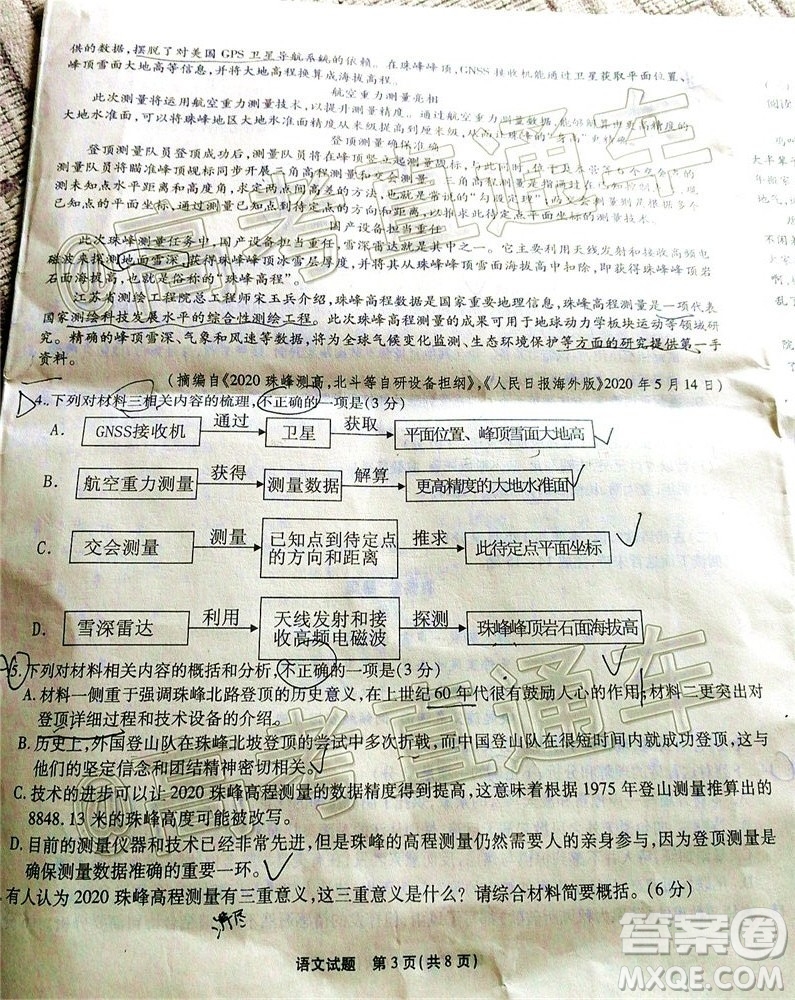 供的数据，摆脱了对美国 GPS 卫星导航系统的依赖。在珠峰峰顶，GNSS 接收机能通过卫星获取平面位置、
峰顶雪面大地高等信息，并将大地高程换算成海拔高程。
航空重力测量亮相
此次测量将运用航空重力测量技术，以提升测量精度。通过航空重力测量数据，能够解算出更高精度的
大地水准面，可以将珠峰地区大地水准面精度从米级提高到厘米级，从而让珠峰的“身高”更精确
登顶测量确保准确
登顶测量队员登顶成功后，测量队员将在峰顶竖立起觇标，
测量队员将瞄准峰顶觇标同步开展三角高程测量和交会测量。三角高程测量
测未知点水平距离和高度角，求定两点间高差的方法，也就是常说的“勾股定理”；
已知点的平面坐标，通过测量已知点到待定点的方向和距离，以推求这个待定点平面坐标的测量技术。
国产设备担当重任
此次珠峰测量任务中，国产设备担当重任，雪深雷达就是其中之一。它主要利用天线发射和接收高频电
磁波来探测地面雪深，获得珠峰峰顶冰雪层厚度，并将其从珠峰峰顶雪面海拔高中扣除，即获得珠峰峰顶岩
石面海拔高，也就是俗称的“珠峰高程”。
江苏省测绘工程院总工程师宋玉兵介绍，珠峰高程数据是国家重要地理信息，珠峰高程测量是一项代表
国家测绘科技发展水平的综合性测绘工程。此次珠峰高程测量的成果可用于地球动力学板块运动等领域研
究。精确的峰顶雪深、气象和风速等数据，将为全球气候变化监测、生态环境保护等方面的研究提供第一手
资料。
（摘编自《2020 珠峰测高，北斗等自研设备担纲》，《人民日报海外版》2020 年 5 月 14 日）
4. 下列对材料三相关内容的梳理，不正确的一项是(3 分)
A. GNSS接收机 通过 卫星 获取 平面位置、峰顶雪面大地高
B. 航空重力测量 获得 测量数据 解算 更高精度的大地水准面
C. 交会测量 测量 已知点到待定点的方向和距离 推求 此待定点平面坐标
D. 雪深雷达 利用 天线发射和接收高频电磁波 探测 珠峰峰顶岩石面海拔高
5. 下列对材料相关内容的概括和分析，不正确的一项是(3 分)
A. 材料一侧重于强调珠峰北路登顶的历史意义，在上世纪 60 年代很有鼓励人心的作用；材料二更突出对
登顶详细过程和技术设备的介绍。
B. 历史上，外国登山队在珠峰北坡登顶的尝试中多次折戟，而中国登山队在很短时间内就成功登顶，这与
他们的坚定信念和团结精神密切相关。
C. 技术的进步可以让 2020 珠峰高程测量的数据精度得到提高，这意味着根据 1975 年登山测量推算出的
8848.13 米的珠峰高度可能被改写。
D. 目前的测量仪器和技术已经非常先进，但是珠峰的高程测量仍然需要人的亲身参与，因为登顶测量是
确保测量数据准确的重要一环。
有人认为 2020 珠峰高程测量有三重意义，这三重意义是什么？请综合材料简要概括。(6 分)
语文试题 第 3 页(共 8 页)
@高考直通车
@高考直通车
答案圈
MXQE.COM